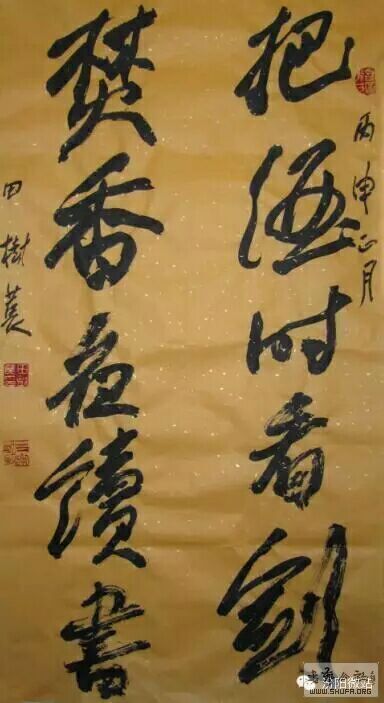 把酒时看剑
丙申正月
焚香夜讀書
田樹萇
汾阳微站
WWW.SHUFA.ORG